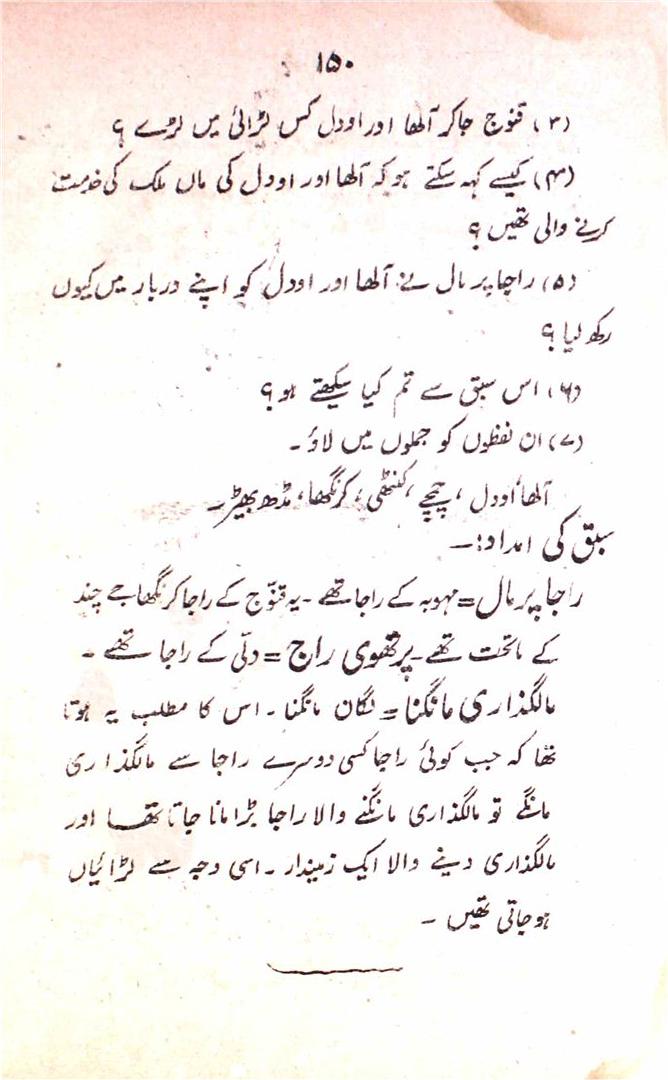 ۱۵۰
(۳) قنوج جاکر آلھا اور اودل کس لڑائی میں لڑے ؟
(۴) کیسے کہہ سکتے ہو کہ آلھا اور اودل کی ماں ملک کی خدمت
کرنے والی تھیں ؟
(۵) راجا پر مال نے آلھا اور اودل کو اپنے دربار میں کیوں
رکھ لیا ؟
(۶) اس سبق سے تم کیا سیکھتے ہو ؟
(۷) ان لفظوں کو جملوں میں لاؤ ۔
آلھا اُودل ، چچے ، کنٹھی ، کرنگھا ، مڈھ بھیڑ ۔
سبق کی امداد :۔
راجا پر مال = مہوبہ کے راجا تھے ۔ یہ قنّوج کے راجا کرنگھا جے چند
کے ماتحت تھے ۔ پرتھوی راج = دلّی کے راجا تھے ۔
مالگذاری مانگنا = لگان مانگنا ۔ اس کا مطلب یہ ہوتا
تھا کہ جب کوئی راجا کسی دوسرے راجا سے مالگذاری
مانگے تو مالگذاری مانگنے والا راجا بڑا مانا جاتا تھا اور
مالگذاری دینے والا ایک زمیندار ۔ اسی وجہ سے لڑائیاں
ہو جاتی تھیں ۔